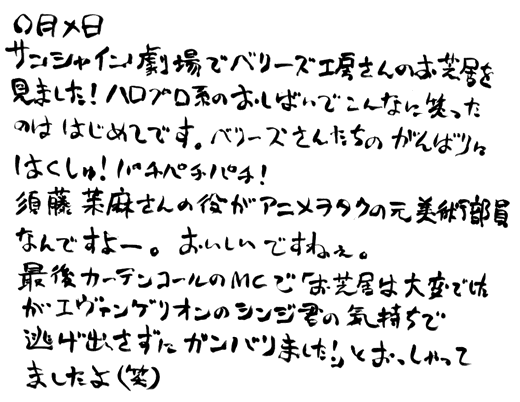 ○月×日
サンシャイン劇場でベリーズ工房さんのお芝居を
見ました！ハロプロ系のおしばいでこんなに笑った
のははじめてです。ベリーズさんたちのがんばりに
はくしゅ！パチパチパチ！
須藤茉麻さんの役がアニメヲタクの元美術部員
なんですよー。おいしいですねぇ。
最後カーテンコールのMCで「お芝居は大変でした
がエヴァンゲリオンのシンジ君の気持ちで
逃げ出さずにガンバリました！」とおっしゃって
ましたよ（笑）